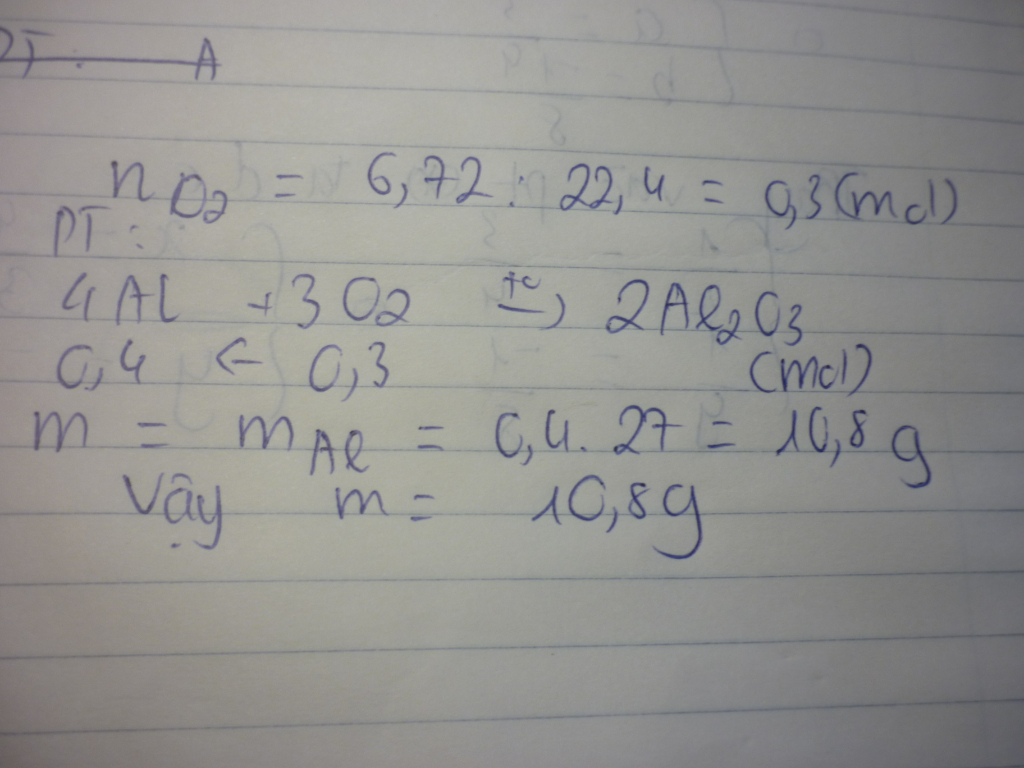 PT: A
n O2 = 6,72 : 22,4 = 0,3 (mol)
PT :
4Al + 3O2 t°→ 2Al2O3
0,4 ← 0,3 (mol)
m = mAl = 0,4 . 27 = 10,8 g
Vậy m = 10,8g